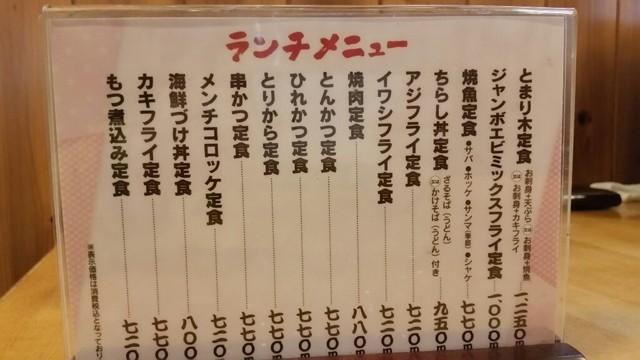 ランチメニュー
とまり木定食 お刺身+天ぷら お刺身+焼魚 お刺身+カキフライ 一、二五〇円
ジャンボエビミックスフライ定食 一、〇〇〇円
焼魚定食 ●サバ ●ホッケ ●サンマ(季節) ●シャケ 七七〇円
ちらし丼定食 ざるそば(うどん) かけそば(うどん)付き 九五〇円
アジフライ定食 七二〇円
イワシフライ定食 七二〇円
焼肉定食 八八〇円
とんかつ定食 七七〇円
ひれかつ定食 七七〇円
とりから定食 七七〇円
串かつ定食 七七〇円
メンチコロッケ定食 七二〇
海鮮づけ丼定食 八〇〇
カキフライ定食 七七〇
もつ煮込み定食 七二〇
※表示価格は消費税込となっており